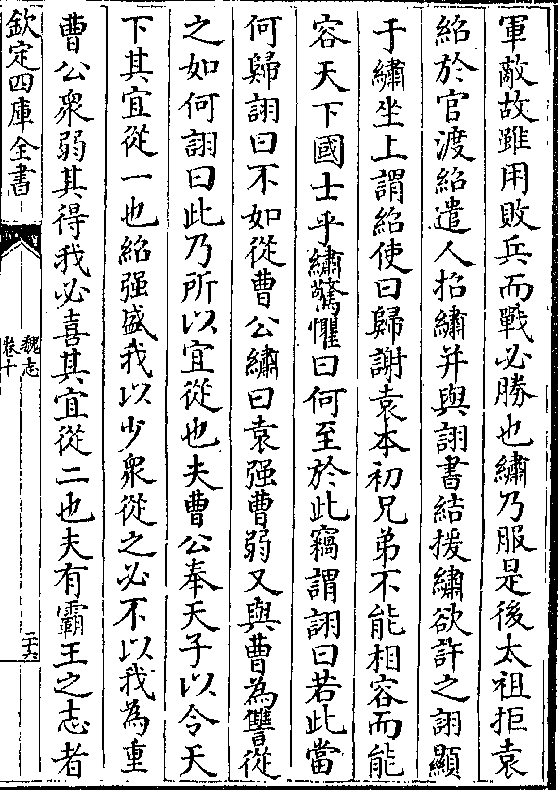 軍敵故雖用敗兵而戰必勝也繡乃服是後太祖拒袁
紹於官渡紹遣人招繡并與詡書結援繡欲許之詡顯
于繡坐上謂紹使曰歸謝袁本初兄弟不能相容而能
容天下國士乎繡驚懼曰何至於此竊謂詡曰若此當
何歸詡曰不如從曹公繡曰袁强曹弱又與曹為讐從
之如何詡曰此乃所以宜從也夫曹公奉天子以令天
下其宜從一也紹强盛我以少衆從之必不以我為重
曹公衆弱其得我必喜其宜從二也夫有霸王之志者
欽定四庫全書
魏志
卷十
二十六